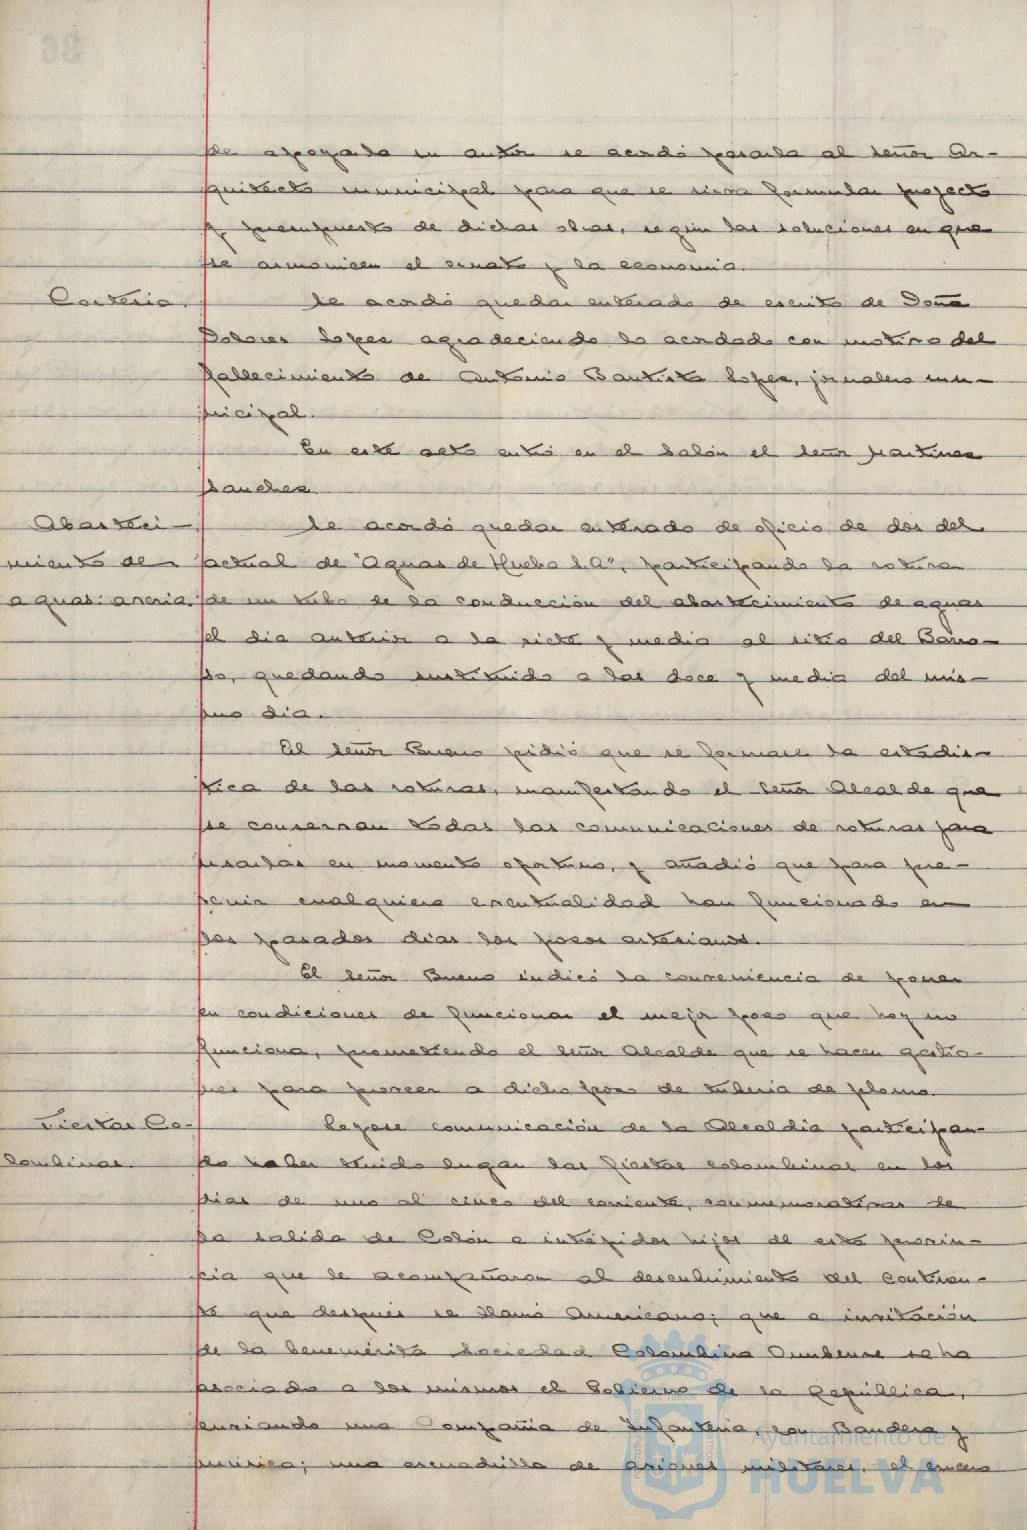 de apoyarla su autor se acordó pasarla al señor Ar-
quitecto municipal para que se sirva formular proyecto
y presupuesto de dichas obras, según las soluciones en que
se armonicen el ornato y la economía.
Cortesía.
Se acordó quedar enterado de escrito de Doña
Dolores Lopez agradeciendo lo acordado con motivo del
fallecimiento de Antonio Bautista Lopez, jornalero mu-
nicipal.
En este acto entró en el Salón el señor Martinez
Sanchez
Abasteci-
miento de
aguas: averia.
Se acordó quedar enterado de oficio de dos del
actual de "Aguas de Huelva S.A", participando la rotura
de un tubo de la conducción del abastecimiento de aguas
el dia anterior a la siete y media al sitio del
quedando sustituido a las doce y media del mis-
mo dia.
El señor Bueno pidió que se formase la estadis-
tica de las roturas, manifestando el señor Alcalde que
se conservan todas las comunicaciones de roturas para
usarlas en momento oportuno, y añadió que para pre-
venir cualquiera eventualidad han funcionado en
los pasados dias los pozos artesianos.
El señor Bueno indicó la conveniencia de poner
en condiciones de funcionar el mejor pozo que hoy no
funciona, prometiendo el señor Alcalde que se hacen gestio-
nes para proveer a dicho pozo de tuberia de plomo.
Fiestas Co-
lombinas.
Leyose comunicación de la Alcaldia participan-
do haber tenido lugar las fiestas colombinas en los
dias de uno al cinco del corriente, conmemorativas de
la salida de Colón e intrépidos hijos de esta provin-
cia que le acompañaron al descubrimiento del Continen-
te que después se llamó Americano; que a invitación
de la benemérita Sociedad Colombina Onubense se ha
asociado a los mismos el Gobierno de la República,
enviando una Compañia de Infanteria, con Bandera y
música; una escuadrilla de aviones militares, el crucero
Ayuntamiento de
HUELVA